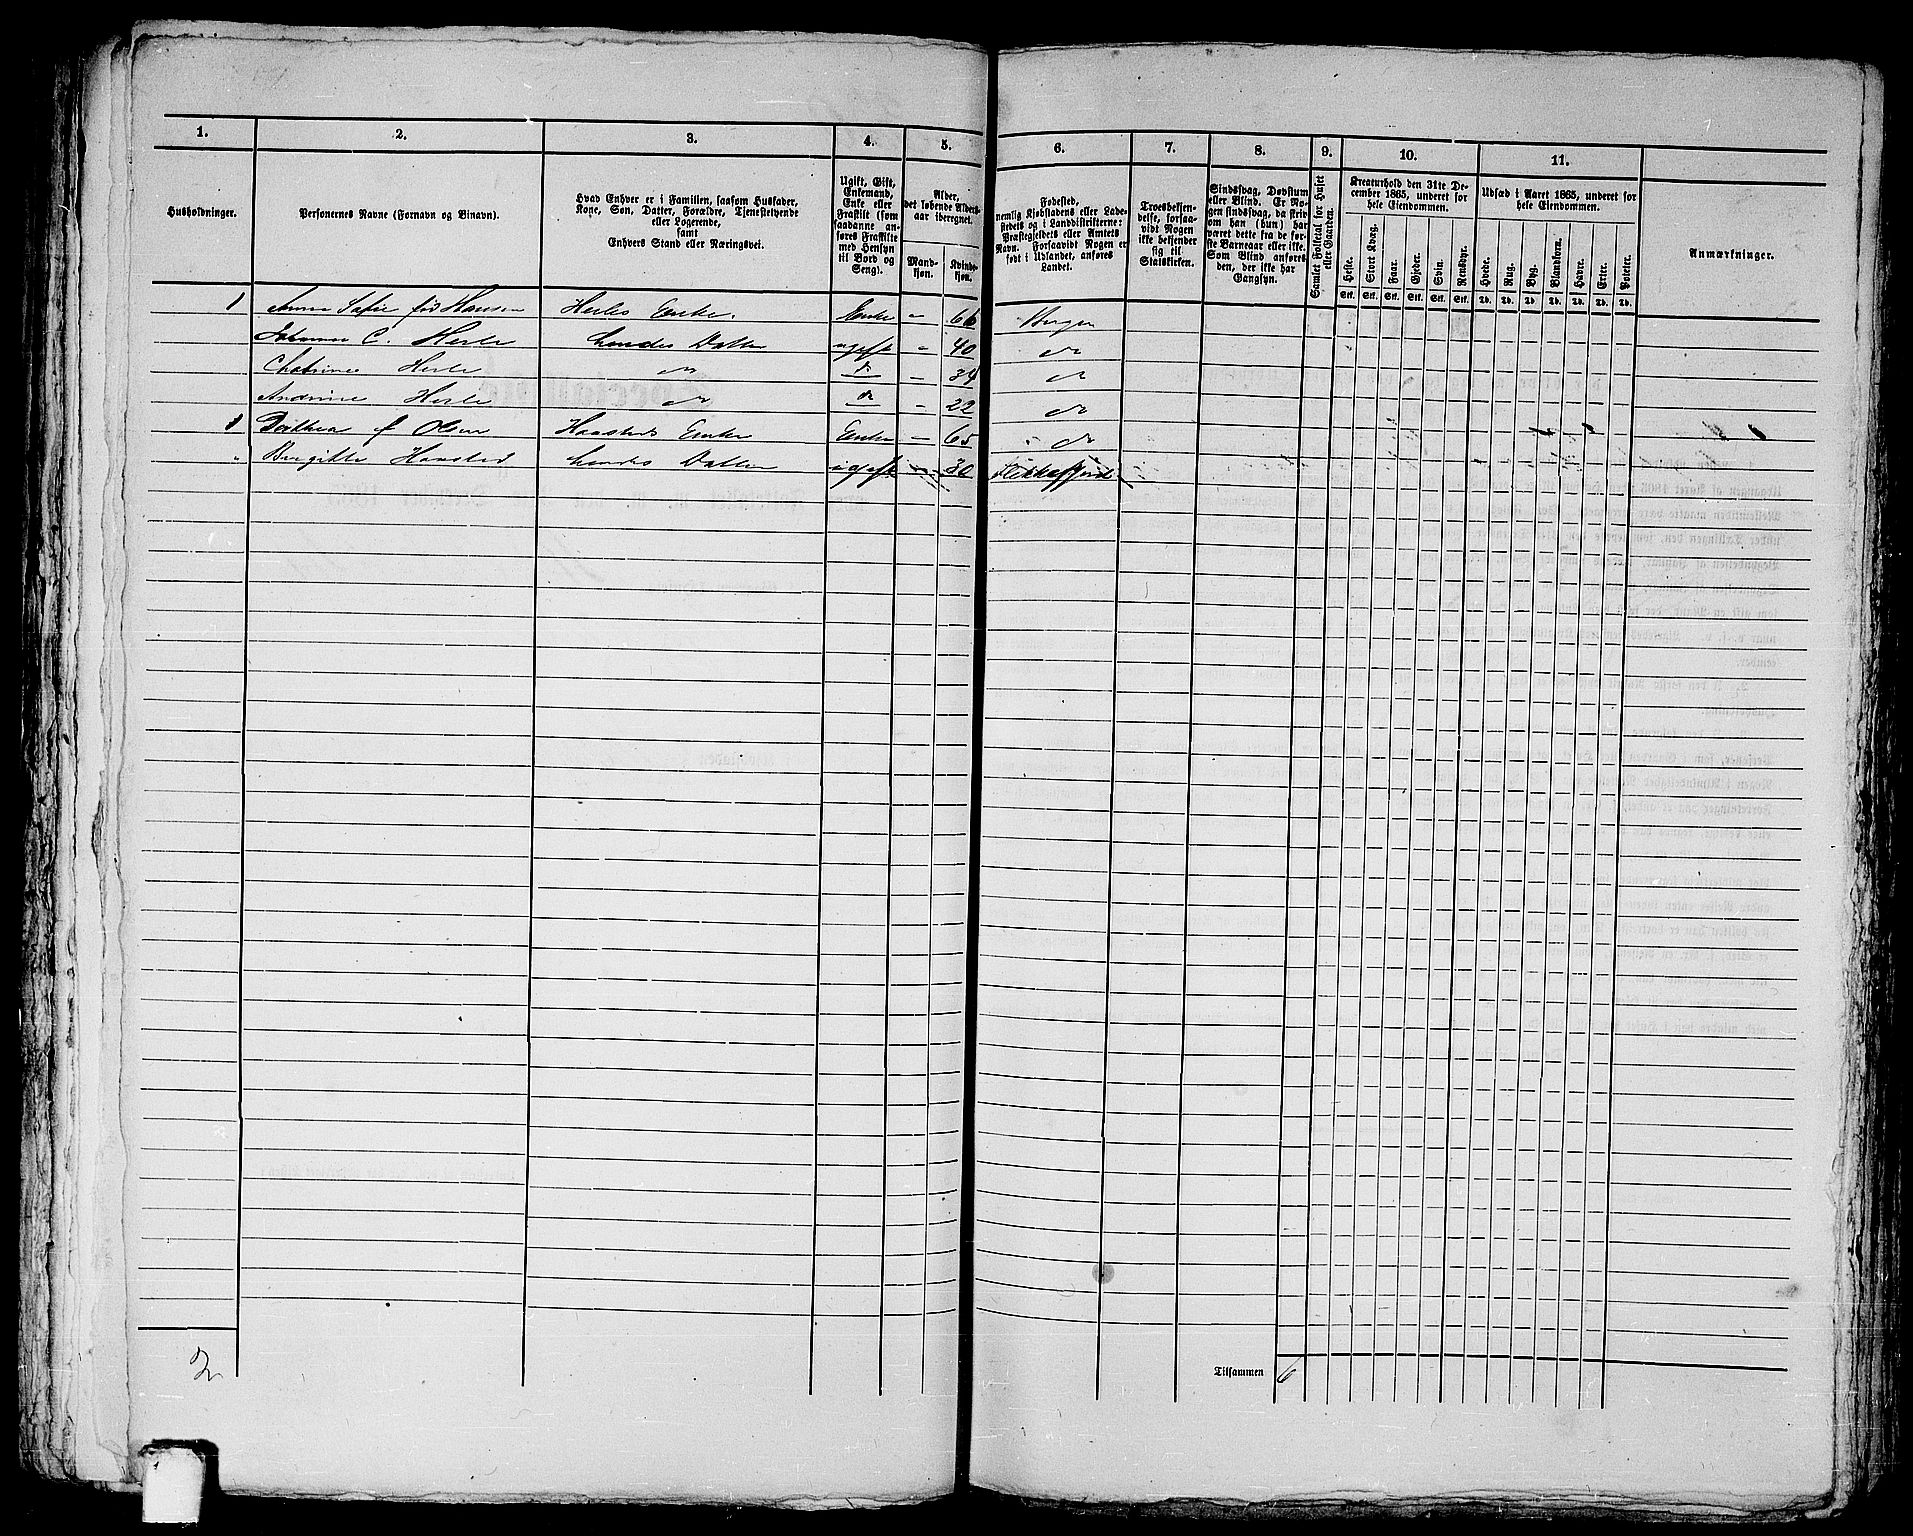 1. 2. 3. 4. 5. 6. 7. 8. 9. 10. 11.
Husholdninger.
Personernes Navne (Fornavn og Binavn).
Hvad Enhver er i Familien, saasom Husfader,
Kone, Søn, Datter, Forældre, Tjenestetyende
eller Logerende,
samt
Enhvers Stand eller Næringsvei.
Ugift, Gift,
Enkemand,
Enke eller
Fraskilt (som
saadanne an-
føres Fraskilte
med Hensyn
til Bord og
Seng).
Alder,
det løbende Alders-
aar iberegnet.
Mand-
kjøn.
Kvinde-
kjøn.
Fødested,
nemlig Kjøbstadens eller Lade-
stedets og i Landdistrikterne:
Præstegjeldets eller Amtets
Navn. Forsaavidt Nogen er
født i Udlandet, anføres
Landet.
Troesbekjen-
delse, forsaa-
vidt Nogen
ikke bekjender
sig til
Statskirken.
Sindssvag, Døvstum
eller Blind. Er No-
gen sindssvag, da skriv
om han (hun) har
været dette fra de før-
ste Barneaar eller ikke.
Som Blind anføres
den, der ikke har
Gangsyn.
Samlet Folketal for Huset
eller Gaarden.
Kreaturhold den 31te De-
cember 1865, underet for
hele Eiendommen.
Heste. Stort Kvæg. Faar. Gjeder. Svin. Rensdyr.
Stk. Stk. Stk. Stk. Stk. Stk.
Udsæd i Aaret 1865, underet for
hele Eiendommen.
Hvede. Rug. Byg. Blandkorn. Havre. Erter. Poteter.
Td. Td. Td. Td. Td. Td. Td.
Anmærkninger.
1 Anna Sofie fød Hansen Herles Enke. Enke - 66 Bergen
C. Herle hendes Datter ugift - 40 do
Chatrine Herle do do - 34 do
Andrine Herle do do - 22 do
1 f Olsen Haasteds Enke Enke - 65 do
" Birgitte Haasted hendes Datter ugift - 30 Flekkefjord
2
Tilsammen 6